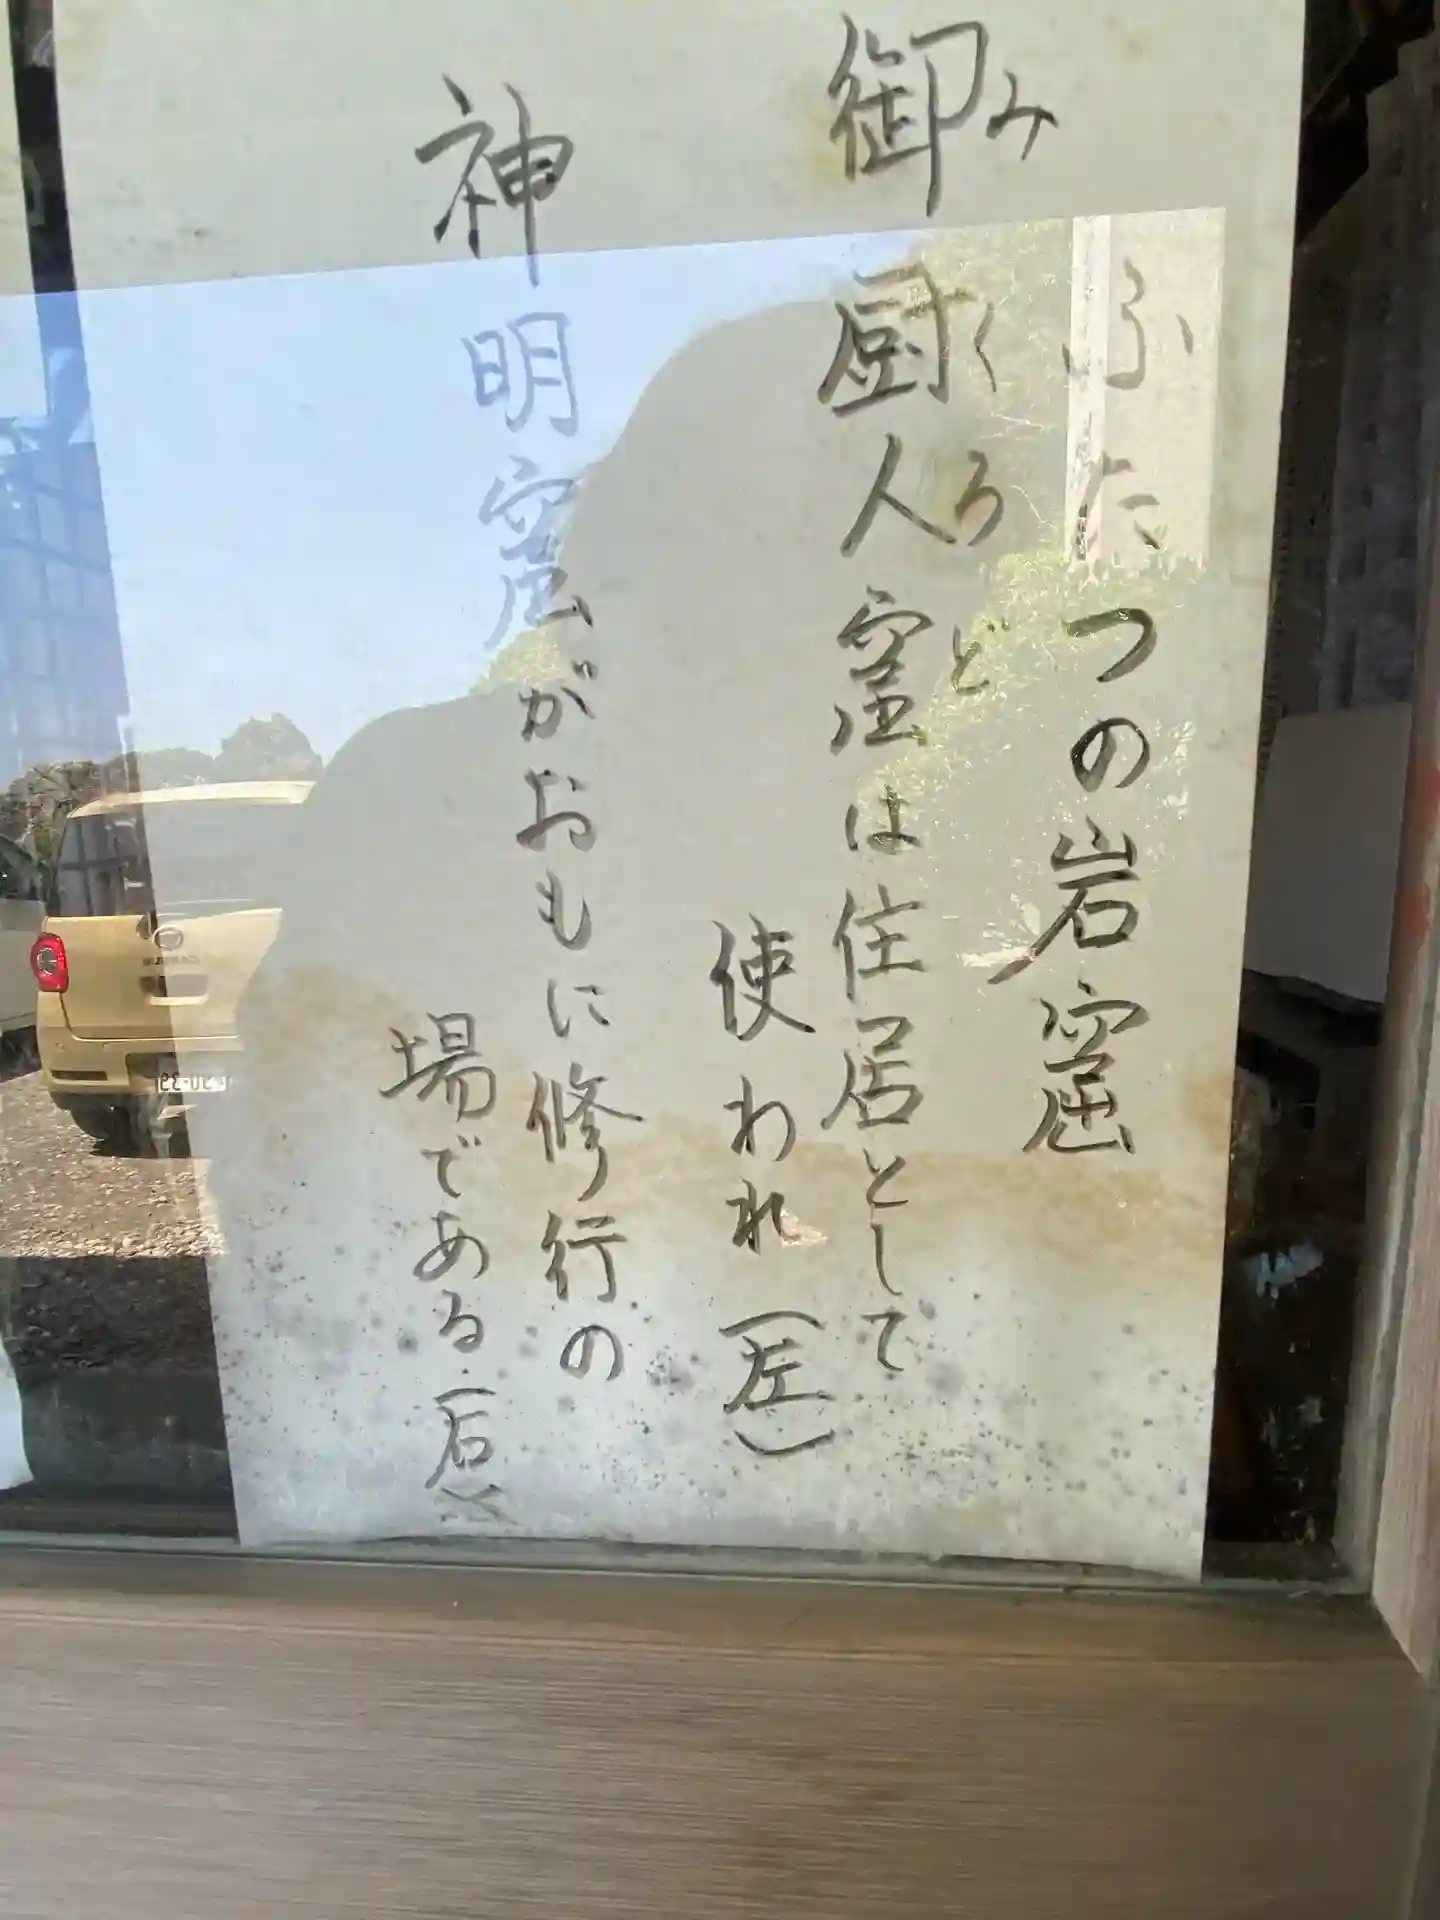 ふたつの岩窟
みくろど
御厨人窟は住居として
使われ(左)
神明窟がおもに修行の
場である.(右)